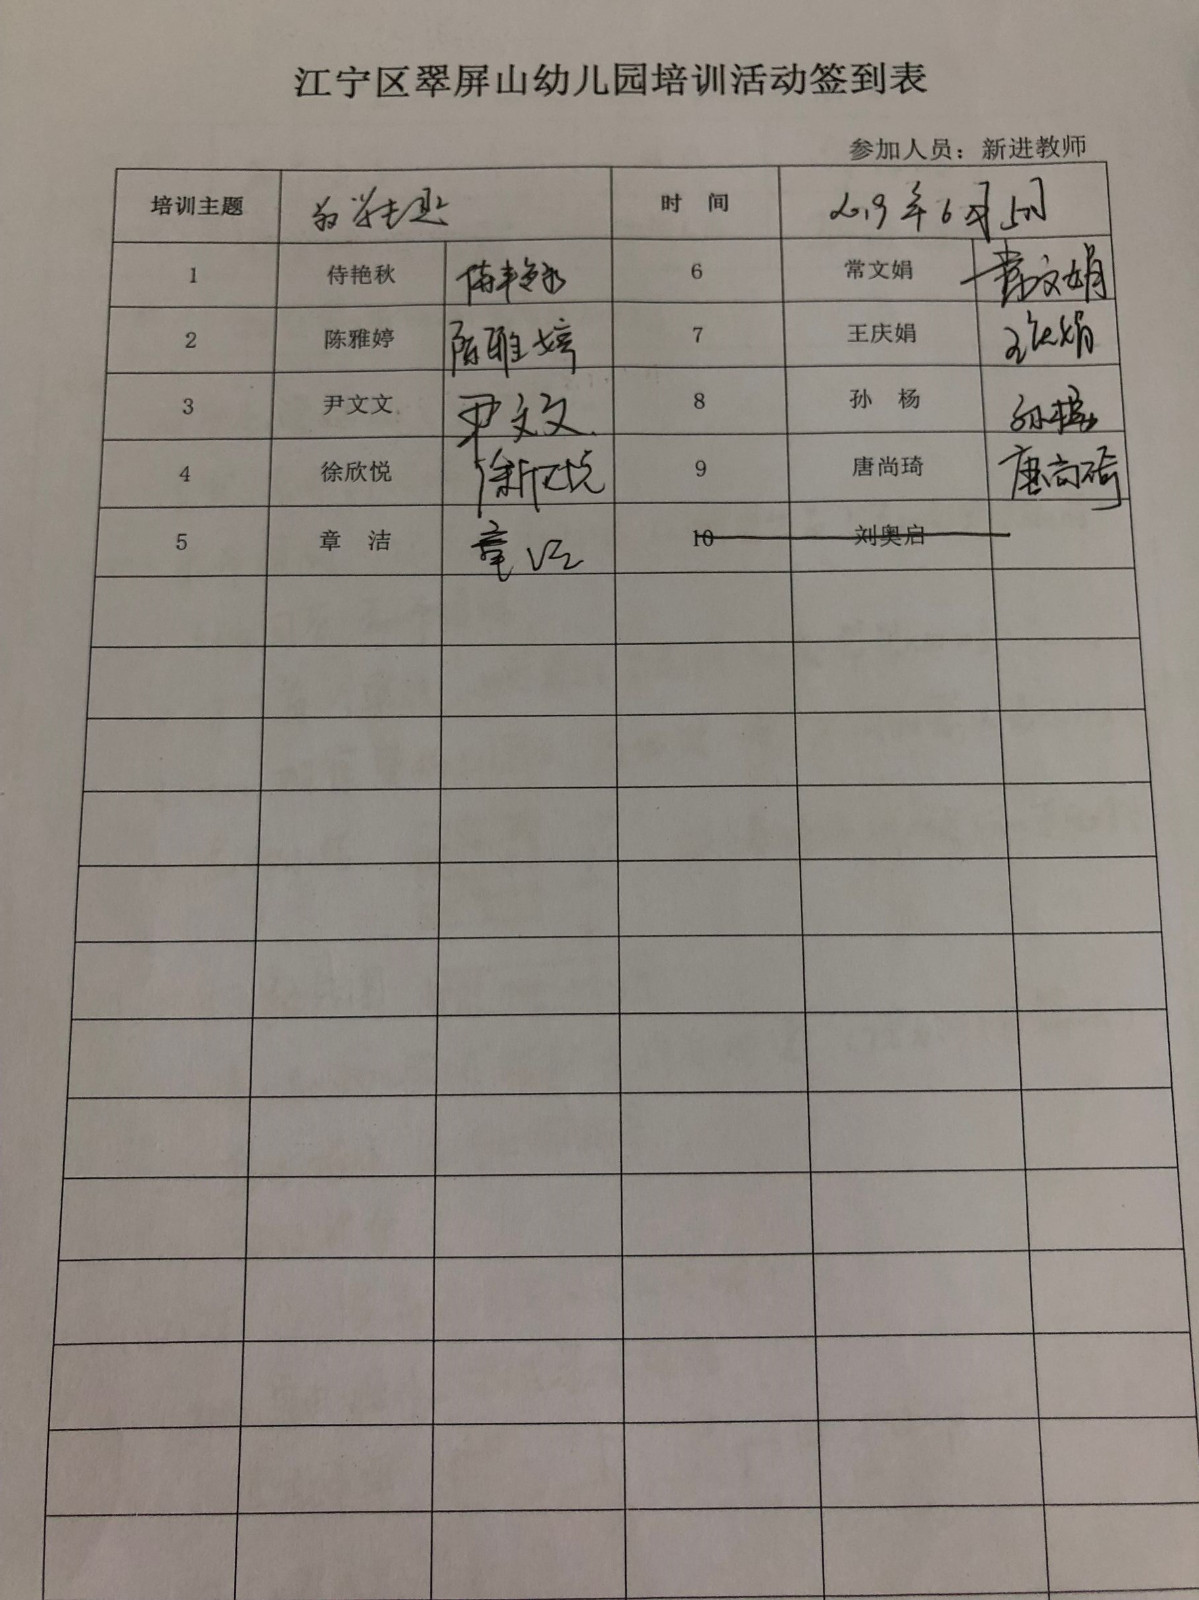 江宁区翠屏山幼儿园培训活动签到表
参加人员：新进教师
培训主题 时 间 2019年6月5日
1 侍艳秋 侍艳秋 6 常文娟 常文娟
2 陈雅婷 陈雅婷 7 王庆娟 王庆娟
3 尹文文 尹文文 8 孙 杨 孙杨
4 徐欣悦 徐欣悦 9 唐尚琦 唐尚琦
5 章 洁 章洁 10 刘奥启